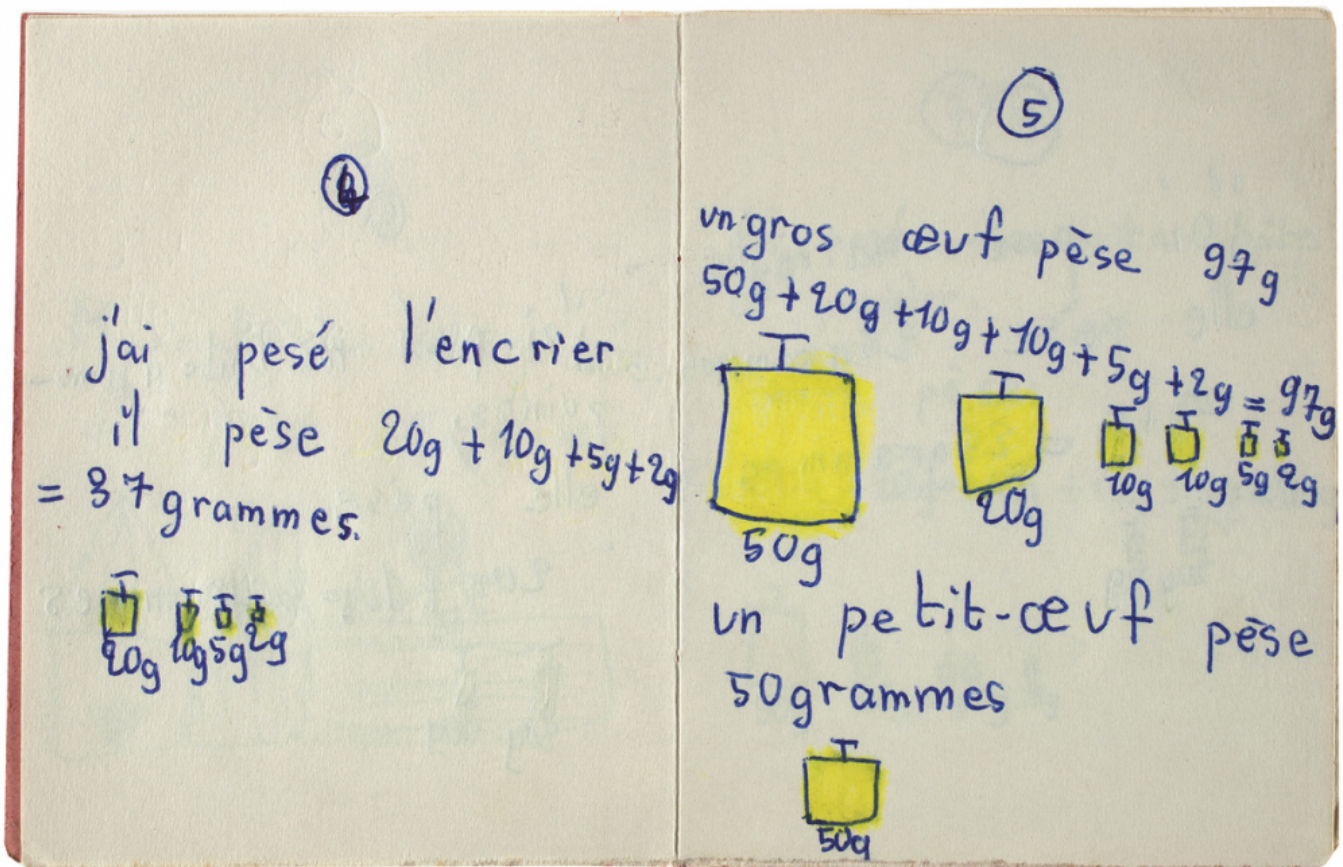 4
j'ai pesé l'encrier
il pèse 20g + 10g + 5g + 2g
= 37 grammes.
20g 10g 5g 2g
5
un gros œuf pèse 97g
50g + 20g + 10g + 10g + 5g + 2g = 97g
50g 20g 10g 10g 5g 2g
un petit-œuf pèse
50 grammes
50g